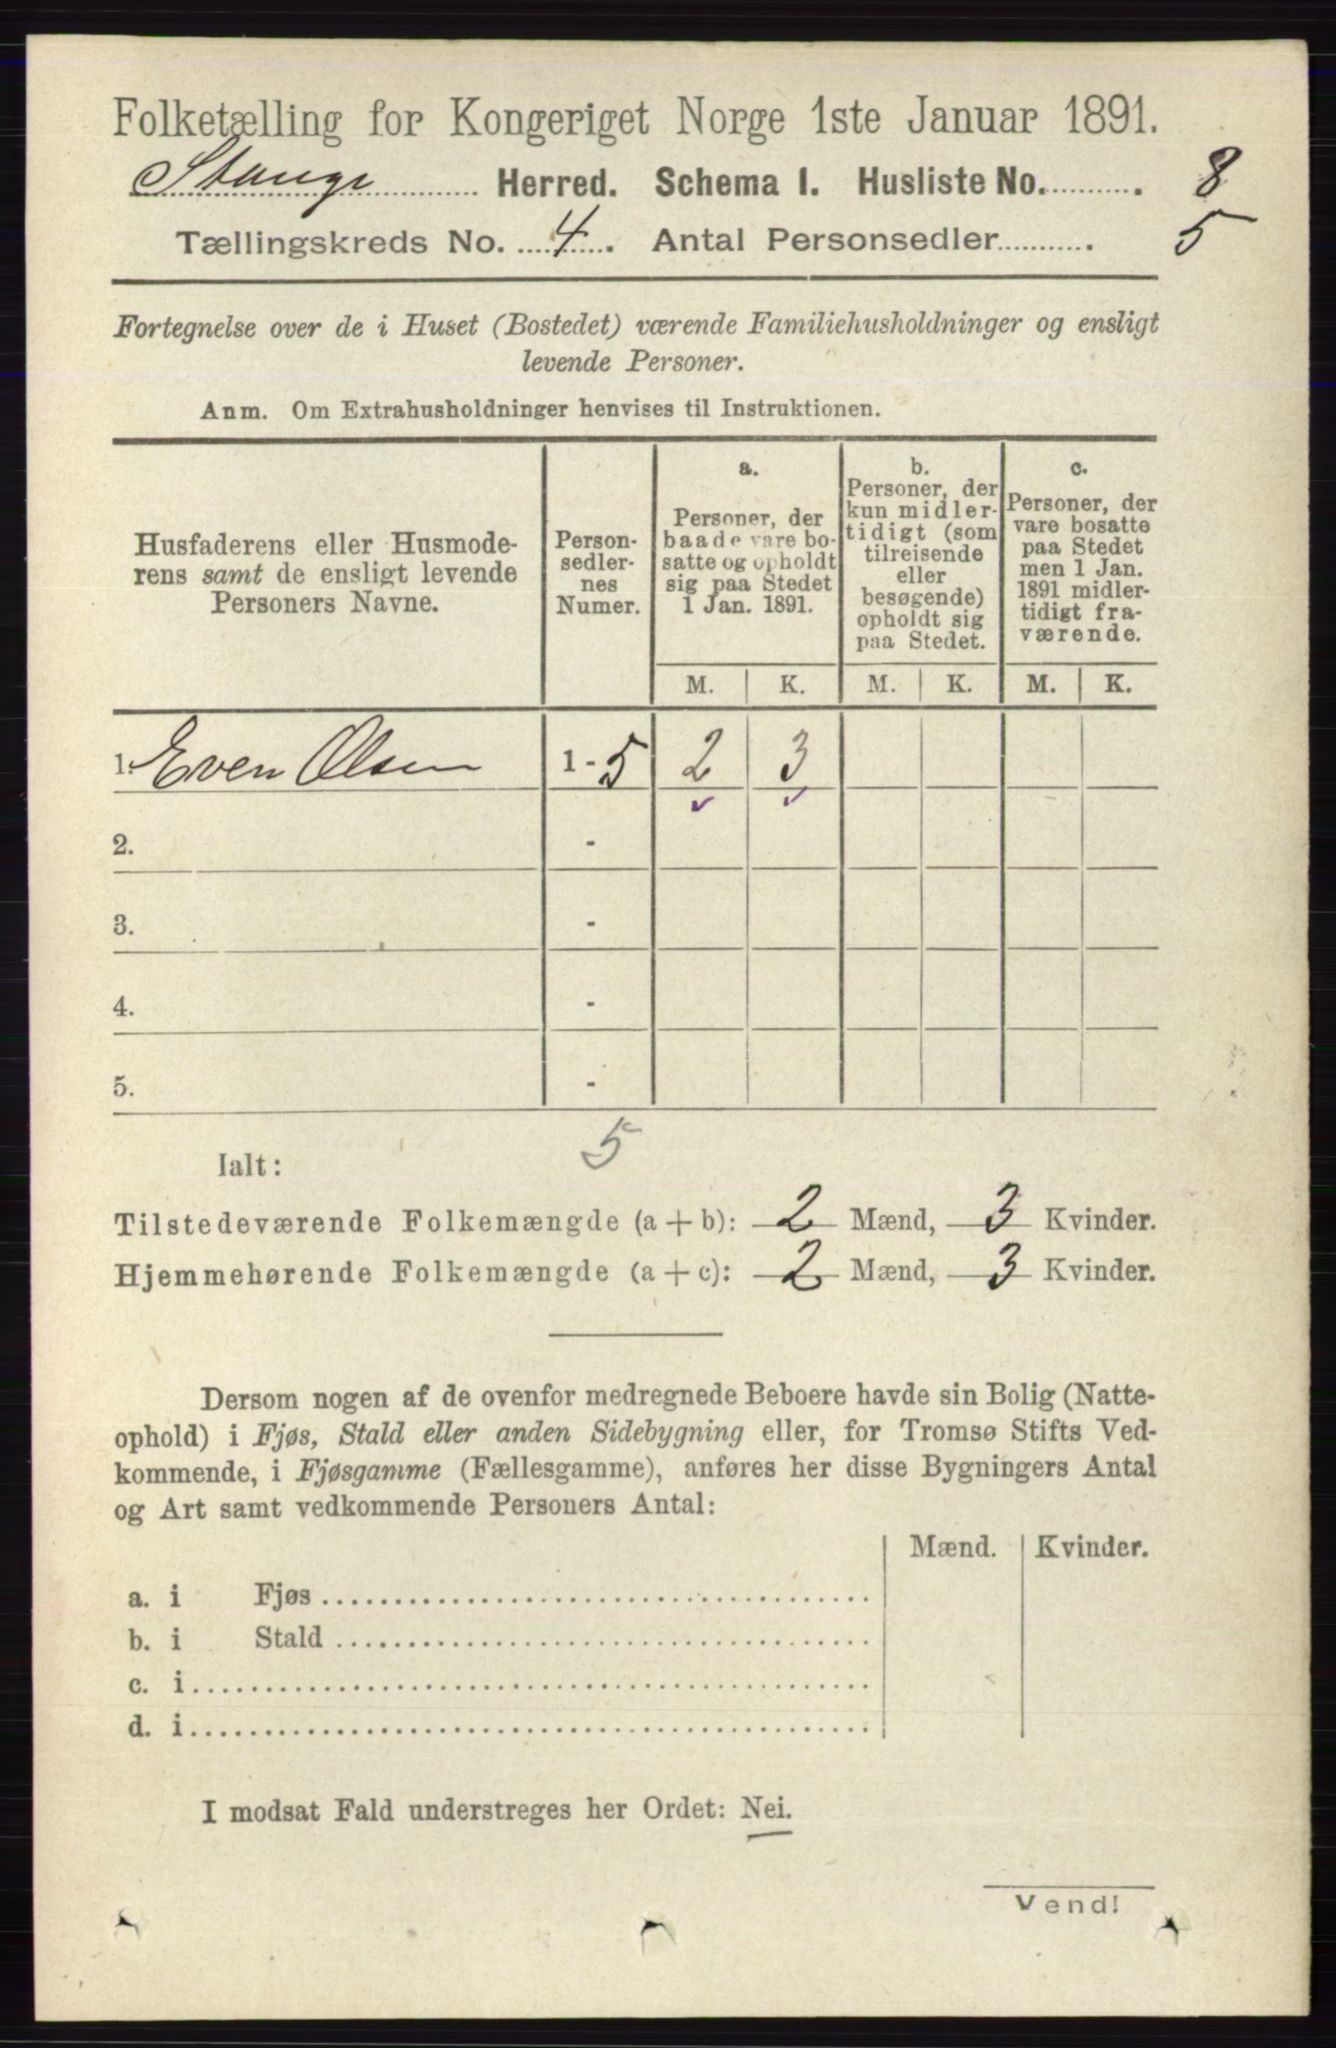 Folketælling for Kongeriget Norge 1ste Januar 1891.
Stange Herred. Schema I. Husliste No. 8
Tællingskreds No. 4. Antal Personsedler 5
Fortegnelse over de i Huset (Bostedet) værende Familiehusholdninger og ensligt
levende Personer.
Anm. Om Extrahusholdninger henvises til Instruktionen.
Husfaderens eller Husmode-
rens samt de ensligt levende
Personers Navne.
Person-
sedler-
nes
Numer.
a.
Personer, der
baade vare bo-
satte og opholdt
sig paa Stedet
1 Jan. 1891.
b.
Personer, der
kun midler-
tidigt (som
tilreisende
eller
besøgende)
opholdt sig
paa Stedet.
c.
Personer, der
vare bosatte
paa Stedet
men 1 Jan.
1891 midler-
tidigt fra-
værende.
M. K. M. K. M. K.
1. Even Olsen 1 - 5 2 3
2. -
3. -
4. -
5. -
Ialt: 5
Tilstedeværende Folkemængde (a + b): 2 Mænd, 3 Kvinder.
Hjemmehørende Folkemængde (a + c): 2 Mænd, 3 Kvinder.
Dersom nogen af de ovenfor medregnede Beboere havde sin Bolig (Natte-
ophold) i Fjøs, Stald eller anden Sidebygning eller, for Tromsø Stifts Ved-
kommende, i Fjøsgamme (Fællesgamme), anføres her disse Bygningers Antal
og Art samt vedkommende Personers Antal:
Mænd. Kvinder.
a. i Fjøs
b. i Stald
c. i
d. i
I modsat Fald understreges her Ordet: Nei.
Vend!